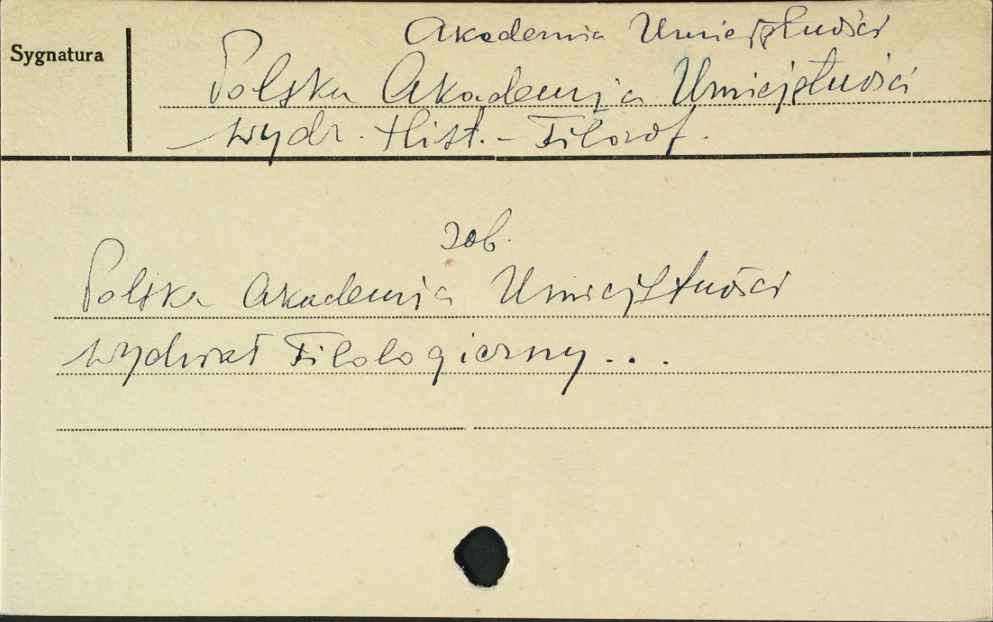 Akademia Umiejętności
Sygnatura
Polska Akademia Umiejętności
Wydz. Hist.-Filozof.
zob.
Polska Akademia Umiejętności
Wydział Filologiczny...